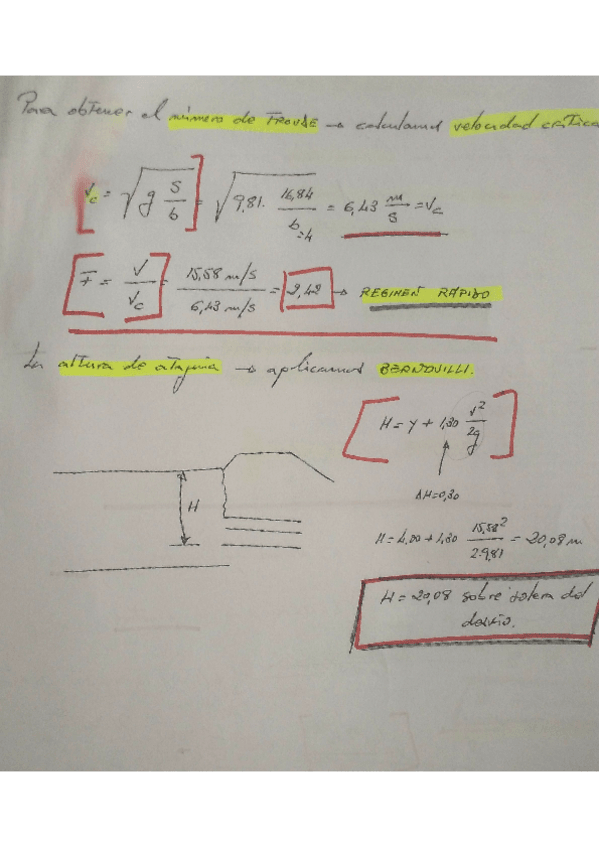 Para obtener el número de FROUDE → calculamos velocidad crítica
Vc = √(g S/b) = √(9,81 · 16,84/b=4) = 6,43 m/s = Vc
F = V/Vc = 15,58 m/s / 6,43 m/s = 2,42 → REGIMEN RÁPIDO
La altura de ataguia → aplicamos BERNOUILLI.
H = y + 1,30 v²/2g
ΔH=0,30
H
H = 4,00 + 1,30 15,58²/2·9,81 = 20,08 m
H = 20,08 sobre solera del
desvío.